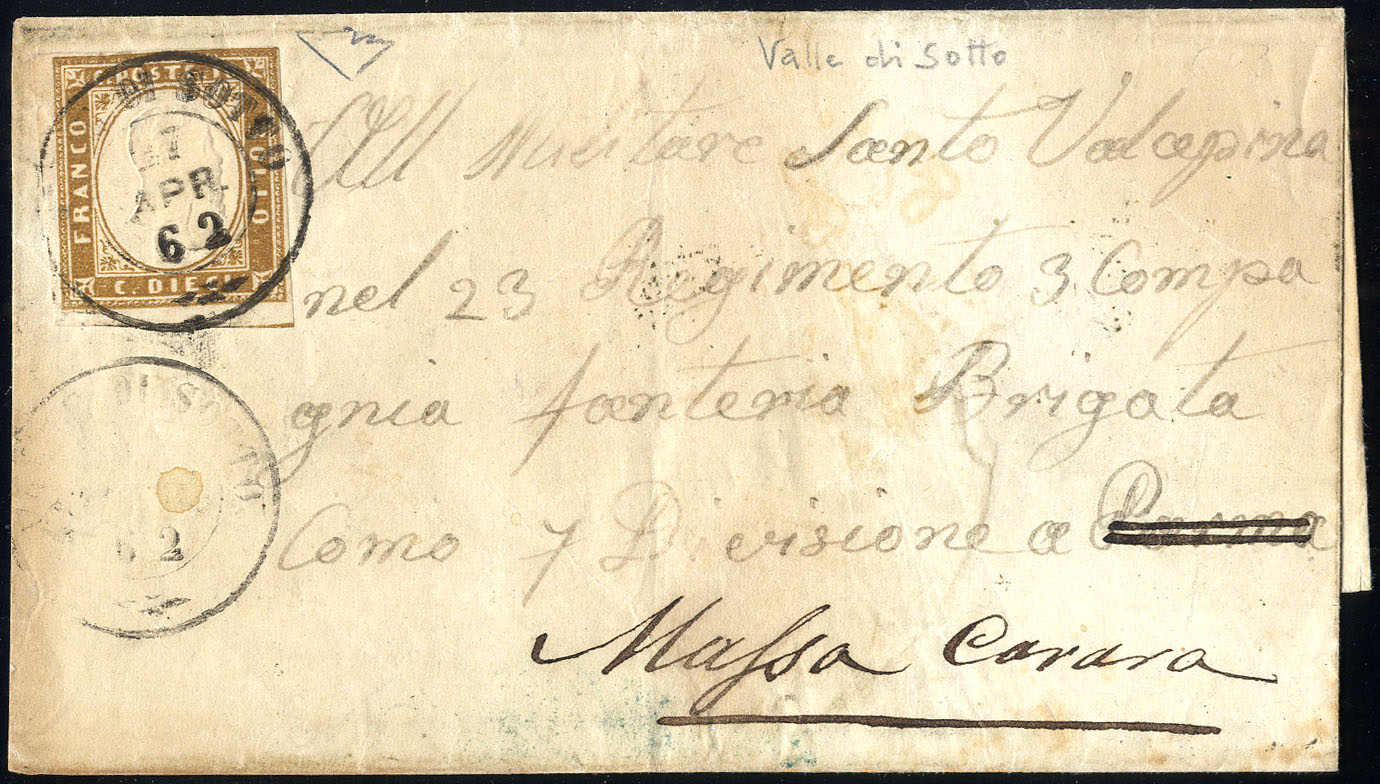 Valle di Sotto
POSTA
FRANCO
BOLLO
C. DIECI
DI SOTTO
27
APR.
62
All Militare Santo Valcepina
nel 23 Regimento 3 Compa
gnia fanteria Brigata
Como 7 Divisione a Parma
Massa Carara
DI SOTTO
62